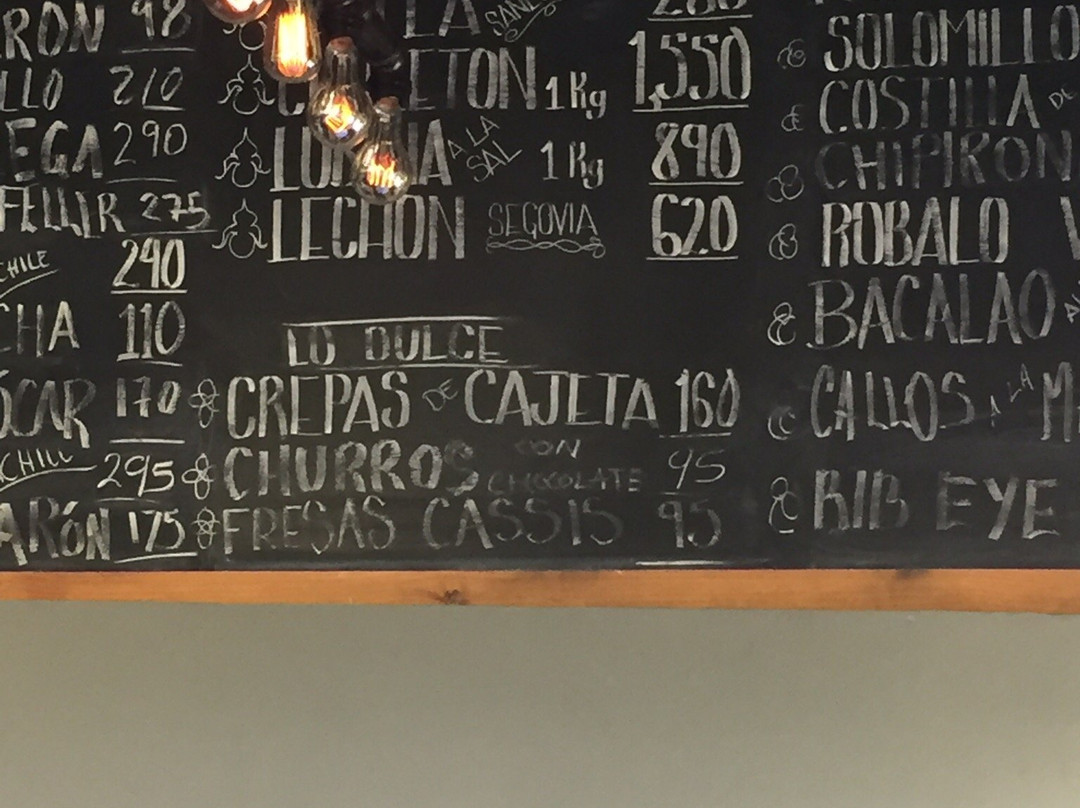 RON 98
LLO 210
EGA 290
FELLIR 275
CHILE 240
CHA 110
ÓCAR 170
CHILL 295
ARÓN 175
LA
ETON 1Kg 1,550
A LA SAL 1Kg 890
LECHON SEGOVIA 620
LO DULCE
CREPAS DE CAJETA 160
CHURROS CON CHOCOLATE 95
FRESAS CASSIS 95
SOLOMILLO
COSTILLA DE
CHIPIRON
ROBALO
BACALAO
CALLOS A LA M
RIB EYE